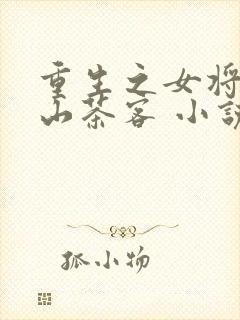 重生之女将
山茶客 小说
孤小物